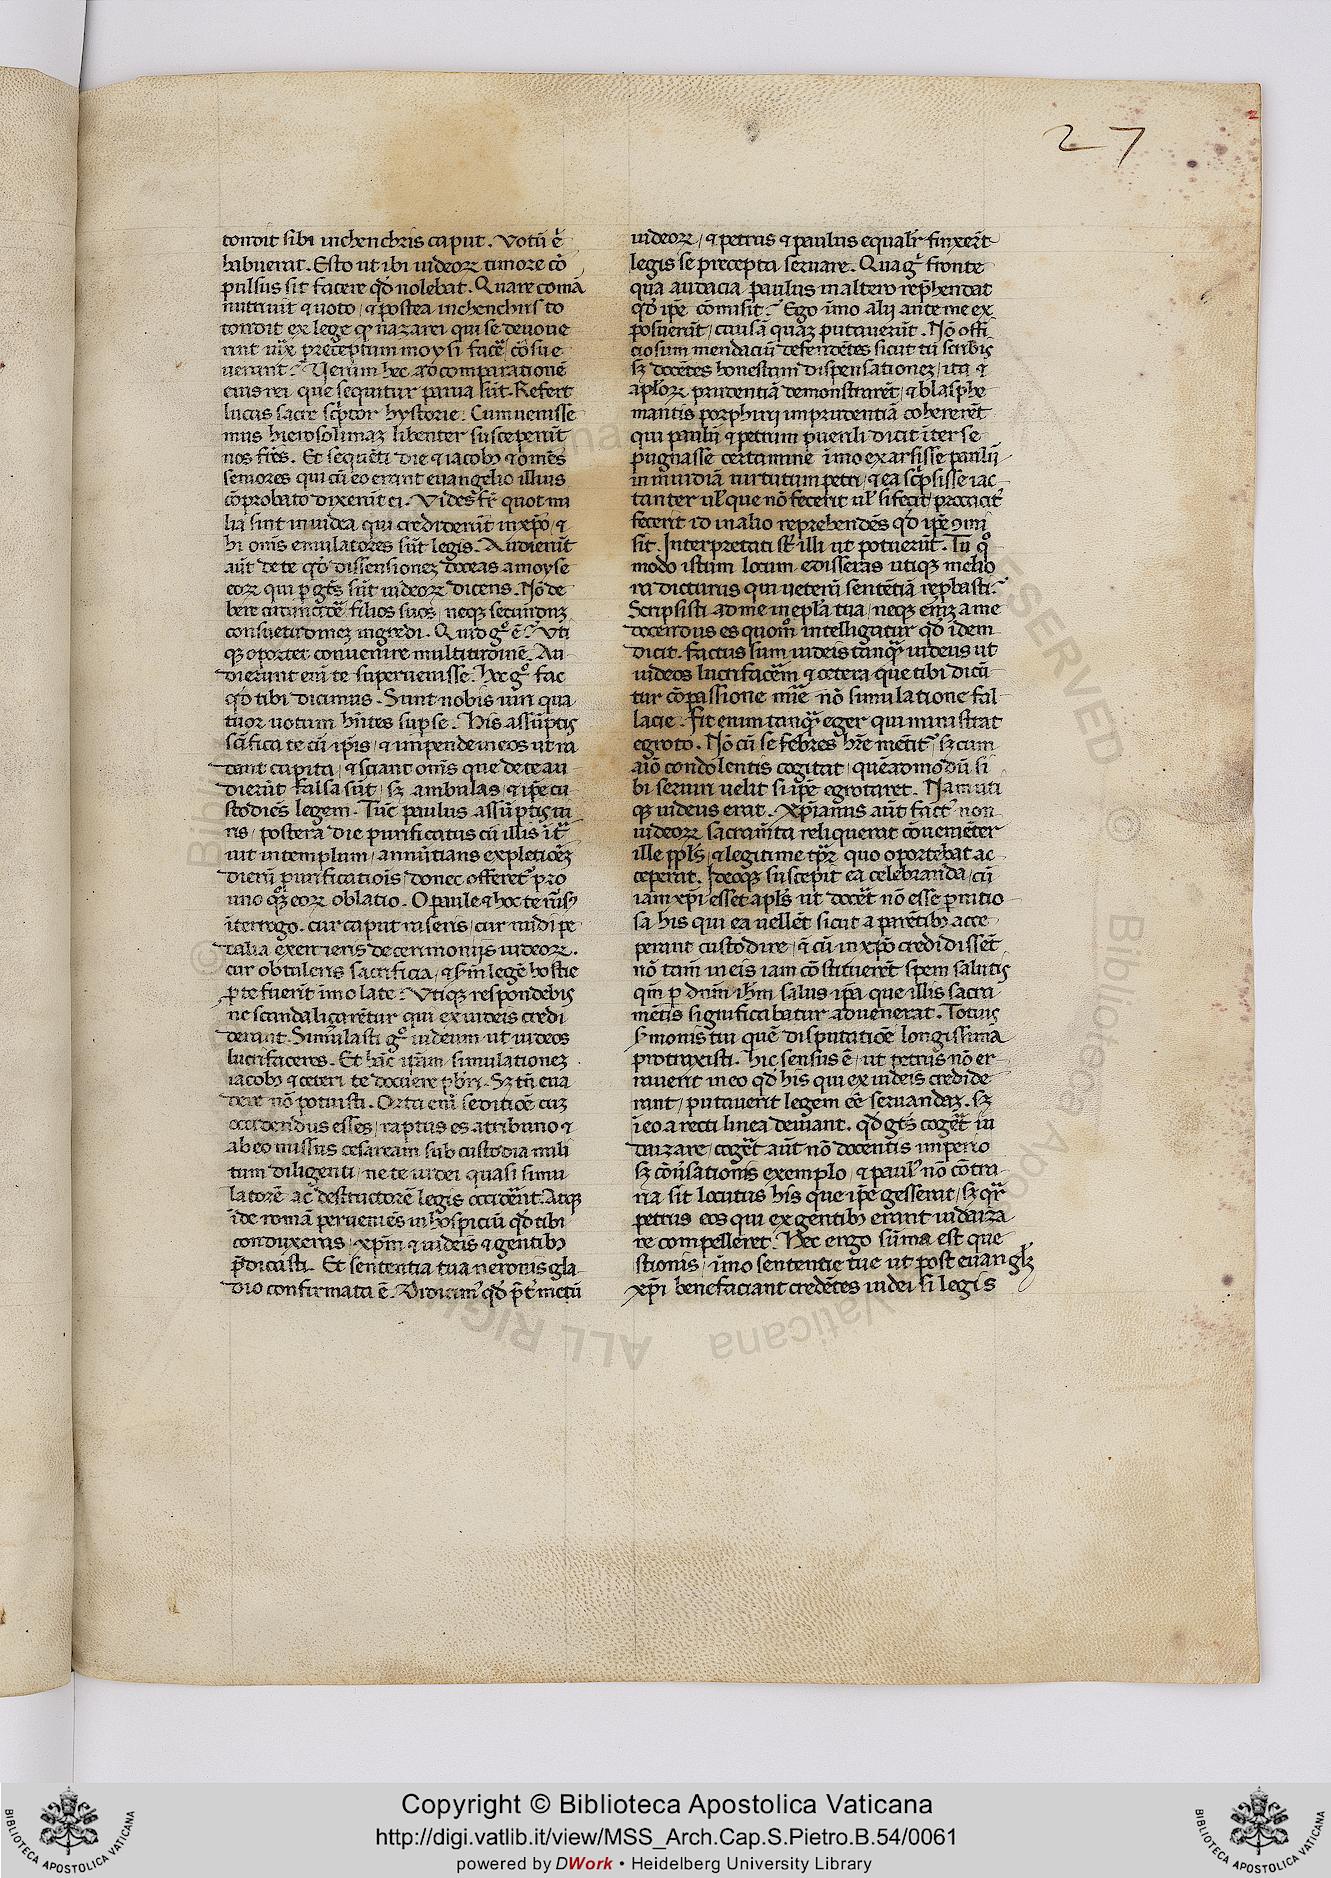 27
tondit sibi inchenchris caput. Votū .n.̄
habuerat. Esto ut ibi iudeoꝝ timore cō
pulsus sit facere qđ nolebat. Quare comā
nutriuit ⁊ uoto / ⁊ postea inchenchris to
tondit ex lege
ueniunt? Verum hec ad comparationē
eius rei que sequitur parua sūt. Refert
lucas sacre sc̄ptor hystorie. Cum uenisse
mus hierosolimaꝫ libenter susceperūt
nos fr̄es. Et sequēti die ⁊ iacobꝰ ⁊ omēs
seniores qui cū eo erant euangelio illius
cōprobato dixerūt ei. Vides fr̄ quot mi
lia sint in iudea qui crediderūt in xp̄o / ⁊
hi om̄s emulatores sūt legis. Audierūt
aūt de te qđ dissensioneꝫ doceas a moyse
eoꝝ qui p gētes sūt iudeoꝝ dicens. Nō de
bere circūcidere filios suos / neqꝫ secundūꝫ
consuetudineꝫ ingredi. Quid gͦ ē? Vti
qꝫ oportet conuenire multitudinē. Au
dierunt eni te superuenisse. Hec gͦ fac
qđ tibi dicimus. Sunt nobis uiri qua
tuor uotum hn̄tes sup se. His assūptis
sc̄ifica te cū ip̄is / ⁊ inpende in eos ut ra
dant capita / ⁊ sciant om̄s que de te au
dierūt falsa sūt / sꝫ ambulas / ⁊ ip̄e cu
stodiēs legem. Tūc paulus assūptis ui
ris / postera die purificatus cū illis īt̄
uit in templum / annūtians expletionēꝫ
dierū purificatiōis / donec offeret̄ pro
uno qꝫ eoꝝ oblatio. O paule ⁊ hoc te rursꝰ
īterrogo. cur caput raseris / cur nudi pe
dalia exercueris de cerimoniis iudeoꝝ.
cur obtuleris sacrificia / ⁊ scdm legē hostie
ꝑ te fuerīt imolate? Vtiqꝫ respondebis
ne scandalizarētur qui ex iudeis credi
derant. Simulasti gͦ iudeum ut iudeos
lucrifaceres. Et hāc ip̄am simulationeꝫ
iacobꝰ ⁊ ceteri te docuere pbr̄i. Sꝫ tn̄ eua
dere nō potuisti. Orta eni seditiōe cuꝫ
occidendus esses / raptus es a tribuno ⁊
ab eo missus cesaream sub custodia mili
tum diligenti / ne te iudei quasi simu
latorē ac destructorē legis occiderēt. Atqꝫ
īde romā perueniēs in hospiciū qđ tibi
conduxeras / xp̄m ⁊ iudeis ⁊ gentibꝰ
p̄dicasti. Et sententia tua neronis gla
dio confirmata ē. Didicimꝰ qđ pp̄t metū
iudeoꝝ / ⁊ petrus ⁊ paulus equalr̄ finxerīt
legis se precepta seruare. Qua gͦ fronte
qua audacia paulus in altero rep̄hendat
qđ ip̄e cōmisit? Ego īmo alii ante me ex
posuerūt / causā quaꝫ putauerūt. Nō offi
ciosum mendaciū defendētes sicut tū scribis
sꝫ docētes honestam dispensationeꝫ / ita ⁊
apl̄oꝝ prudentiā demonstrarēt / ⁊ blasphe
mantis porphirii imprudentiā cohererēt
qui paulū ⁊ petrum puerili dicit īter se
pugnasse certamine īmo exarsisse paulū
in inuidiā uirtutum petri / ⁊ ea scp̄sisse iac
tanter ul̄ que nō fecerit ul̄ si fecit / procacit̄
fecerit id in alio reprehendēs qđ ip̄e ꝯmi
sit. Interpretati st̄ illi ut potuerūt. Tu qͦ
modo istum locum edisseras utiqꝫ melio
ra dicturus qui ueterū sentētiā rep̄basti?
Scripsisti ad me in epl̄a tua / neqꝫ eniꝫ a me
docendus es quom̄ intelligatur qđ idem
dicit. factus sum iudeis tanqꝫ iudeus ut
iudeos lucrifacerē ⁊ cetera que tibi dicū
tur cōpassione mīe nō simulatione fal
lacie. Fit enim tanqꝫ eger qui ministrat
egroto. Nō cū se febres hr̄e mētit̄ / sꝫ cum
aīo condolentis cogitat / quēadmodū si
bi seruiri uelit si ip̄e egrotaret. Nam uti
qꝫ iudeus erat. xp̄ianus aūt factꝰ non
iudeoꝝ sacram̄ta reliquerat cōuenienter
ille ppl̄s / ⁊ legitime tp̄r quo oportebat ac
ceperat. Ideoqꝫ suscepit ea celebranda / cū
iam xp̄i esset apl̄s ut docēt nō esse p̄nitio
sa his qui ea uellēt sicut a parētibꝰ acce
perant custodire / ⁊ cū in xp̄o credidissēt
nō tam̄ in eis iam cōstituerēt spem salutis
qm̄ p dn̄m ih̄m salus ip̄a que illis sacra
mētis significabatur aduenerat. Totius
s̄monis tui quē disputatiōe longissima
protraxisti. hic sensus ē / ut petrus nō er
rauerit in eo qđ his qui ex iudeis credide
rant / putauerit legem eē seruandaꝫ. Sꝫ
ī eo a recti linea deuiarit. qđ gētes cogēt iu
daizare / cogēt aūt nō docentis imperio
sꝫ cōuersationis exemplo / ⁊ paulꝰ nō cōtra
ria sit locutus his que ip̄e gesserat / sꝫ qr̄
petrus eos qui ex gentibꝰ erant iudaiza
re compelleret. Hec ergo sūma est que
stionis / īmo sententie tue ut post euanglꝫ
xp̄i benefaciant credētes iudei si legis
Copyright © Biblioteca Apostolica Vaticana
http://digi.vatlib.it/view/MSS_Arch.Cap.S.Pietro.B.54/0061
powered by DWork • Heidelberg University Library
BIBLIOTECA APOSTOLICA VATICANA
BIBLIOTECA APOSTOLICA VATICANA